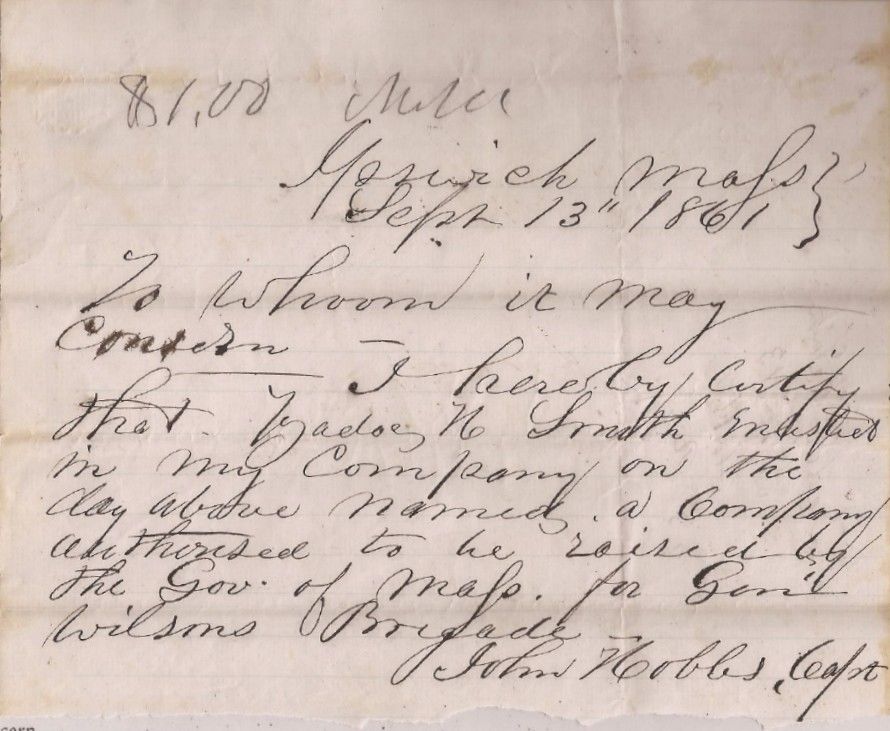 $1,00
Ipswich Mass
Sept 13" 1861
To whoom it may
Consern
— I hereby Certify
that N Smith Enlisted
in my Company on the
day above named. a Company
authorised to be raised by
the Gov. of Mass. for Genl
Wilsons Brigade
John Hobbs, Capt
cern